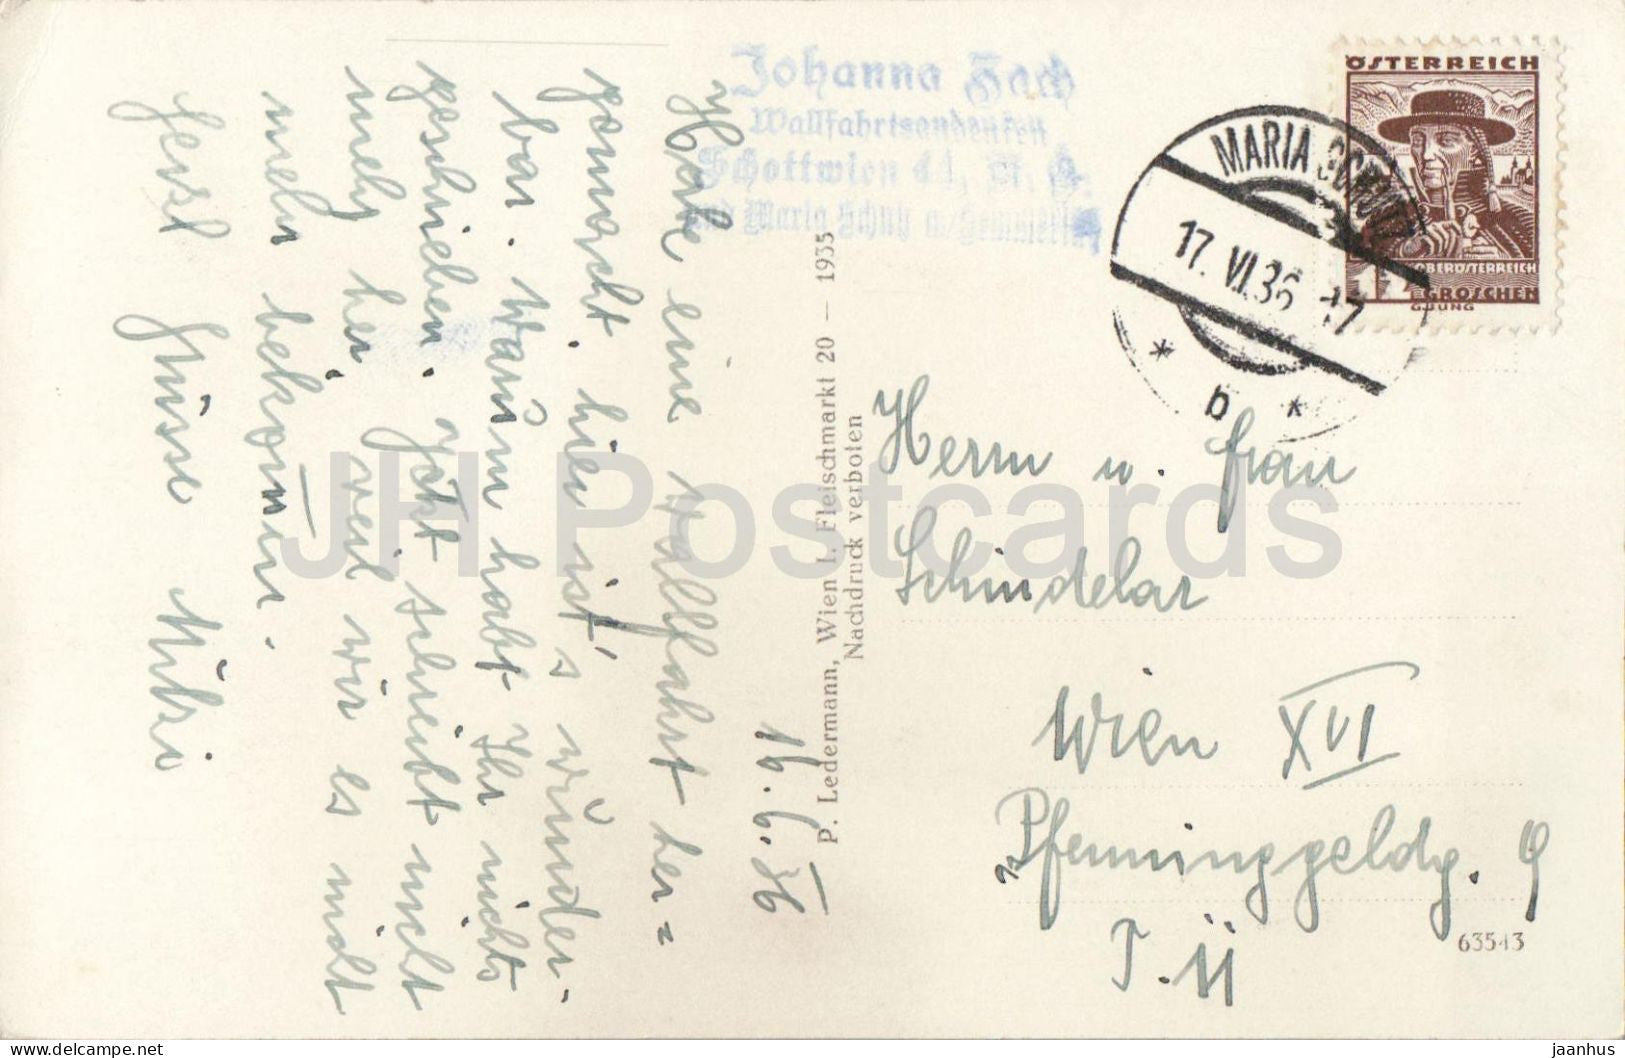 16.6.36
Habe eine Wallfahrt her=
gemacht, hier ist's wunder-
bar. Warum habt Ihr nichts
geschrieben. Jetzt schreibt nicht
mehr her, weil wir es nicht
mehr bekommen.
Herzl Grüsse Mitzi
Johanna
Wallfahrtsandenken
Schottwien
und Maria Schutz a/Semmering
P. Ledermann, Wien I, Fleischmarkt 20 — 1935
Nachdruck verboten
ÖSTERREICH
OBERÖSTERREICH
GROSCHEN
G.JUNG
MARIA SCHUTZ
17.VI.36 17
* b *
Herrn u. Frau
Schindelar
Wien XVI
Pfenninggeldg. 9
T. 11
63543
JH Postcards
delcampe.net
jaanhus